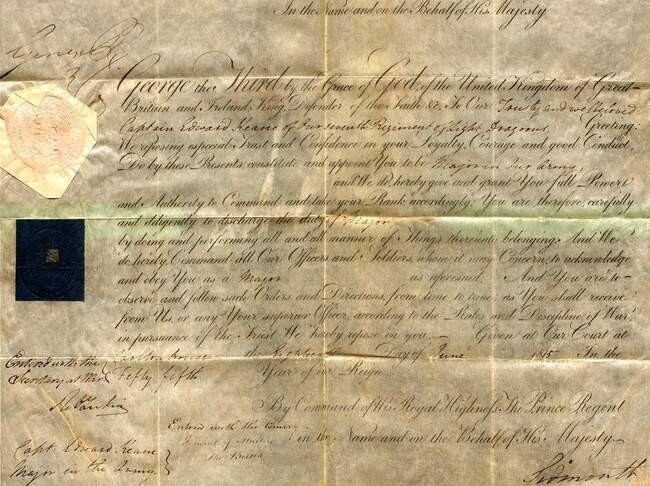 In the Name and on the Behalf of His Majesty
George P R
George the Third by the Grace of God, of the United Kingdom of Great
Britain and Ireland King, Defender of the Faith &c. To Our Trusty and well beloved
Captain Edward Keane of Our seventh Regiment of Light Dragoons Greeting:
We reposing especial Trust and Confidence in your Loyalty, Courage and good Conduct,
Do by these Presents, constitute and appoint You to be Major in Our Army
and We do hereby give and grant You full Power
and Authority to Command and take your Rank accordingly. You are therefore, carefully
and diligently to discharge the duty of Major
by doing and performing all and all manner of Things thereunto belonging. And We
do hereby Command all Our Officers and Soldiers, whom it may Concern, to acknowledge
and obey You as a Major as aforesaid. And You are to
observe and follow such Orders and Directions, from time to time, as You shall receive
from Us, or any Your superior Officer, according to the Rules and Discipline of War
in pursuance of the Trust We hereby repose in you. Given at Our Court at
Carlton house the Eighteenth Day of June 1815 In the
Fifty fifth Year of our Reign
Entered with the
Secretary at War
By Command of His Royal Highness The Prince Regent
in the Name and on the Behalf of His Majesty
Entered with the
General of
the Board
Capt. Edward Keane
Major in the Army
Sidmouth